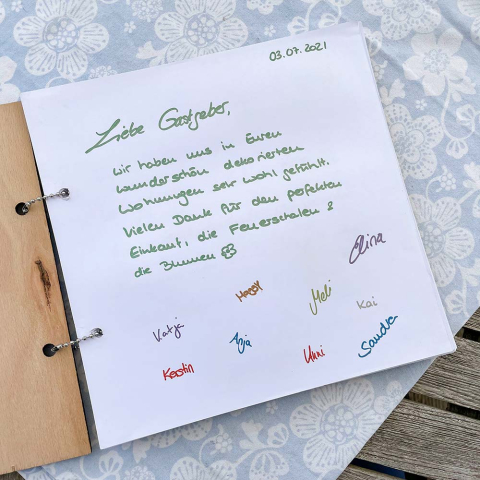 03.07.2021
Liebe Gastgeber,
wir haben uns in Euren
wunderschön dekorierten
Wohnungen sehr wohl gefühlt.
Vielen Dank für den perfekten
Einkauf, die Feuerschalen &
die Blumen
Elina
Meli
Kai
Katja
Anja
Sandra
Kerstin
Unni